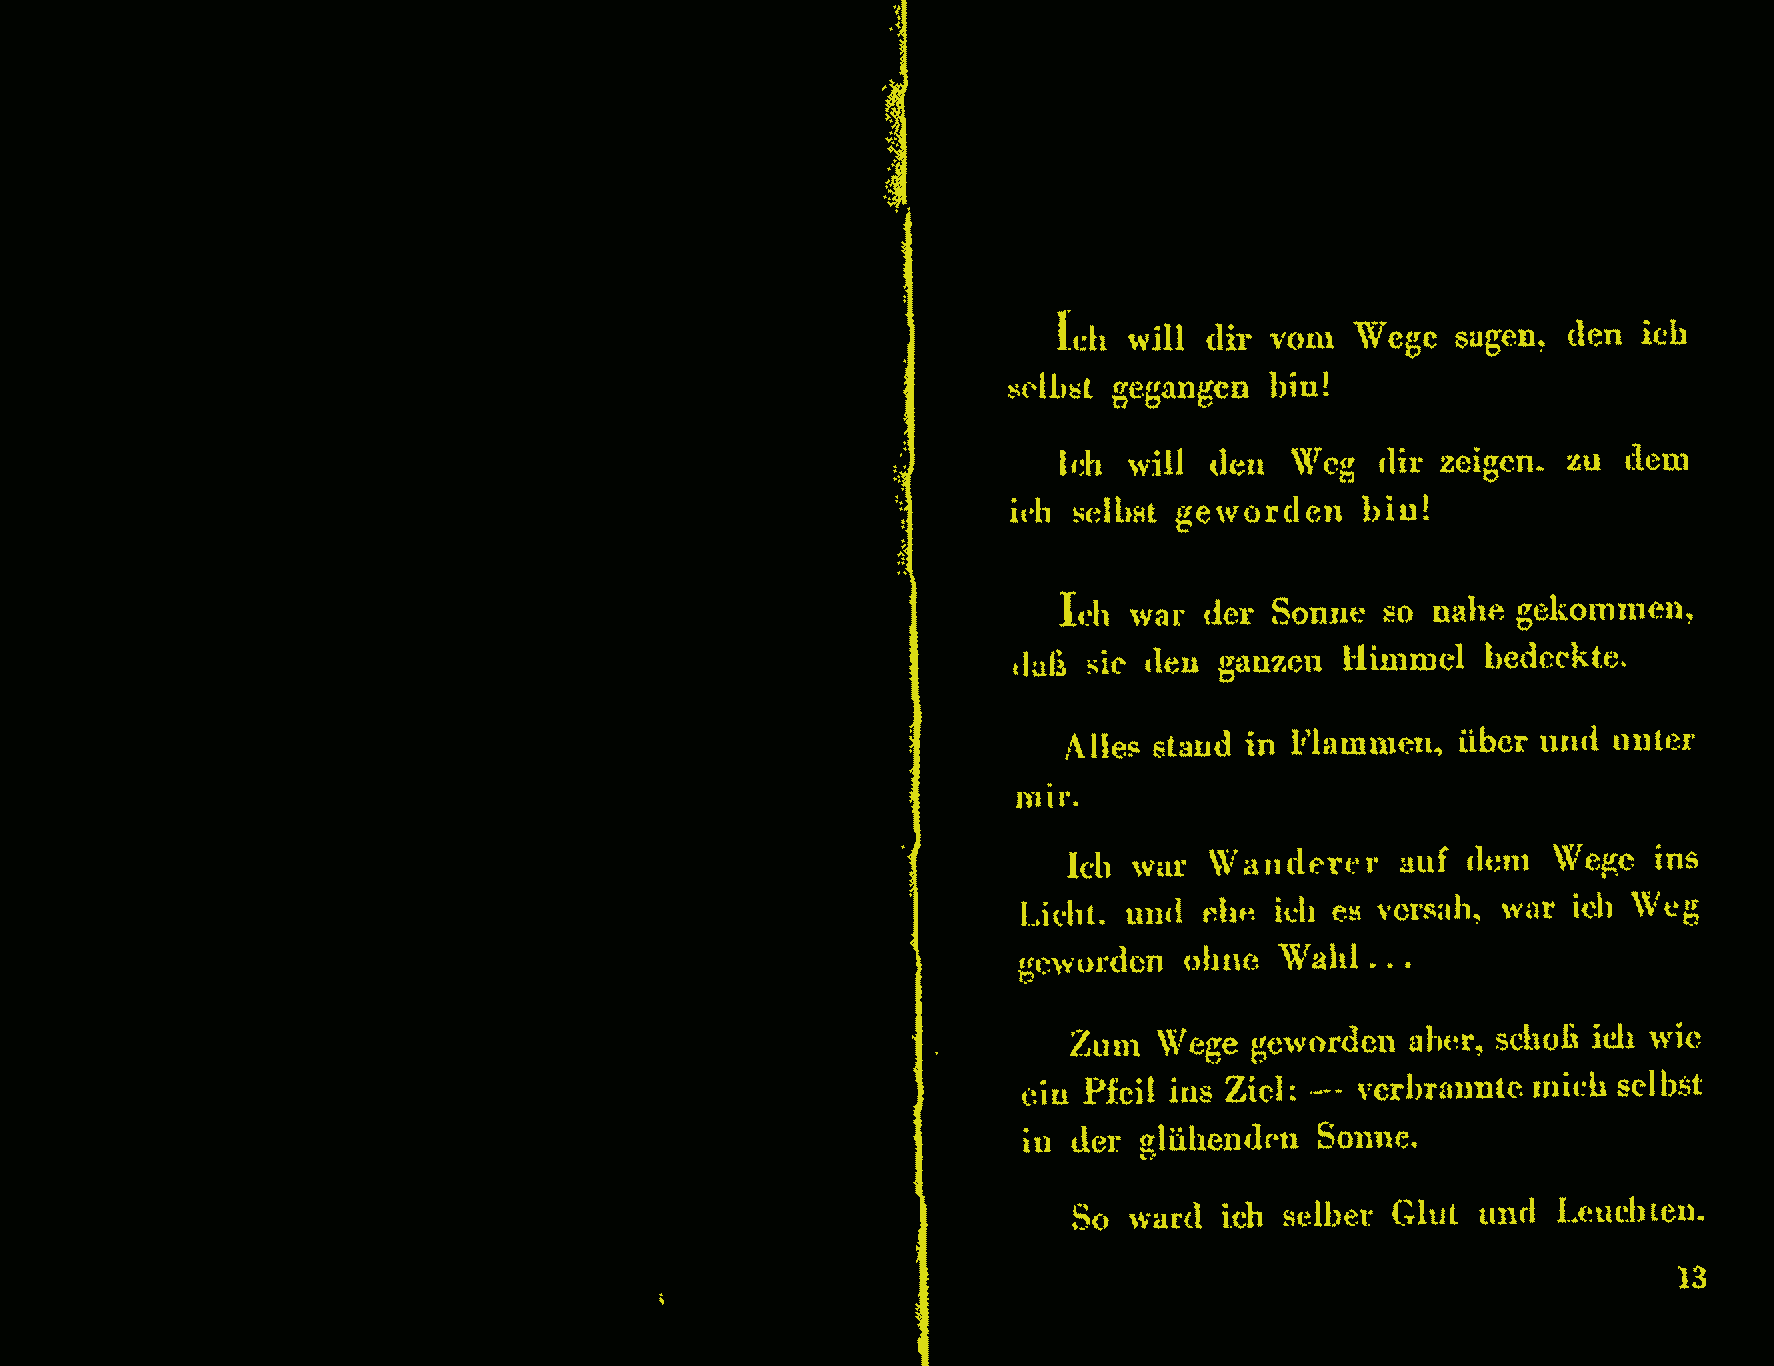 Ich will dir vom Wege sagen, den ich
selbst gegangen bin!
Ich will den Weg dir zeigen, zu dem
ich selbst geworden bin!
Ich war der Sonne so nahe gekommen,
daß sie den ganzen Himmel bedeckte.
Alles stand in Flammen, über und unter
mir.
Ich war Wanderer auf dem Wege ins
Licht, und ehe ich es versah, war ich Weg
geworden ohne Wahl...
Zum Wege geworden aber, schoß ich wie
ein Pfeil ins Ziel: — verbrannte mich selbst
in der glühenden Sonne.
So ward ich selber Glut und Leuchten.
13